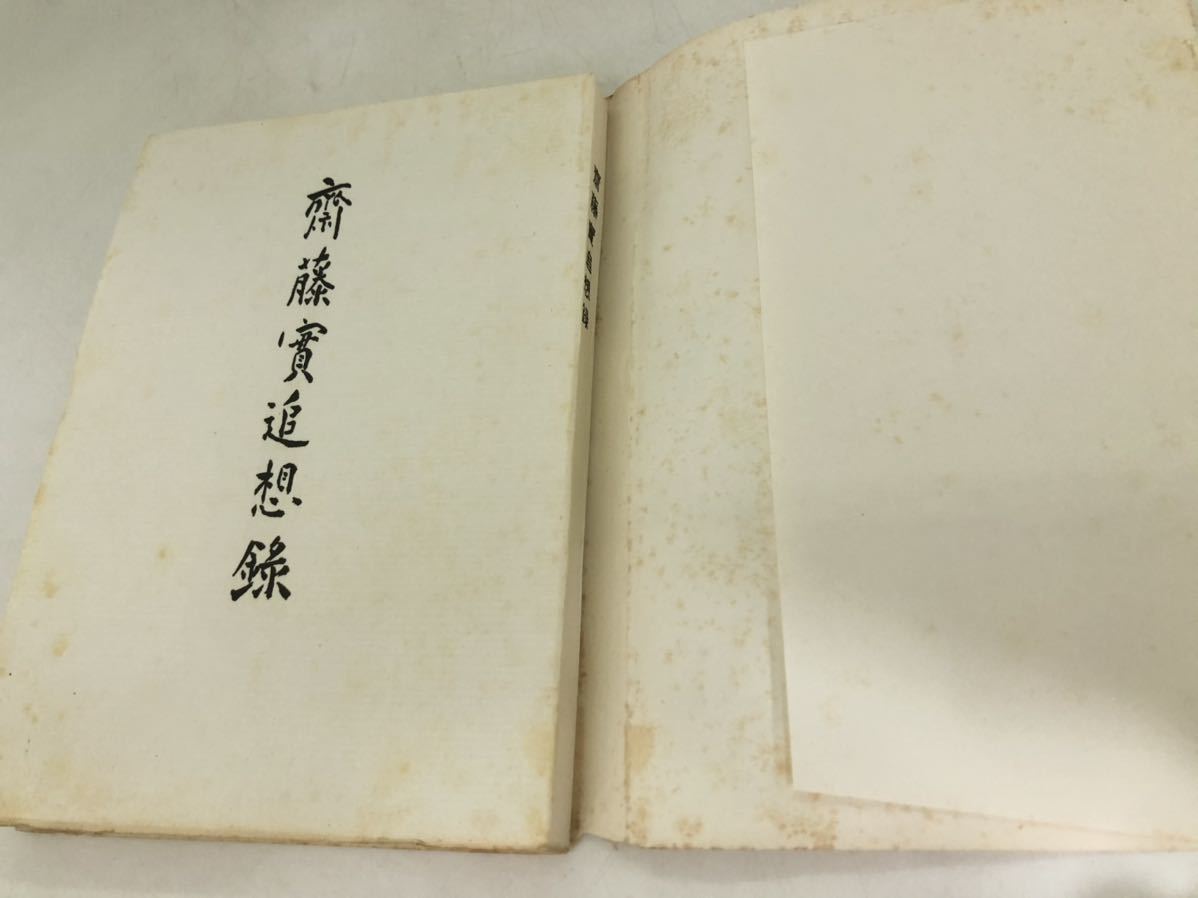 齋藤實追想錄
齋藤實追想錄